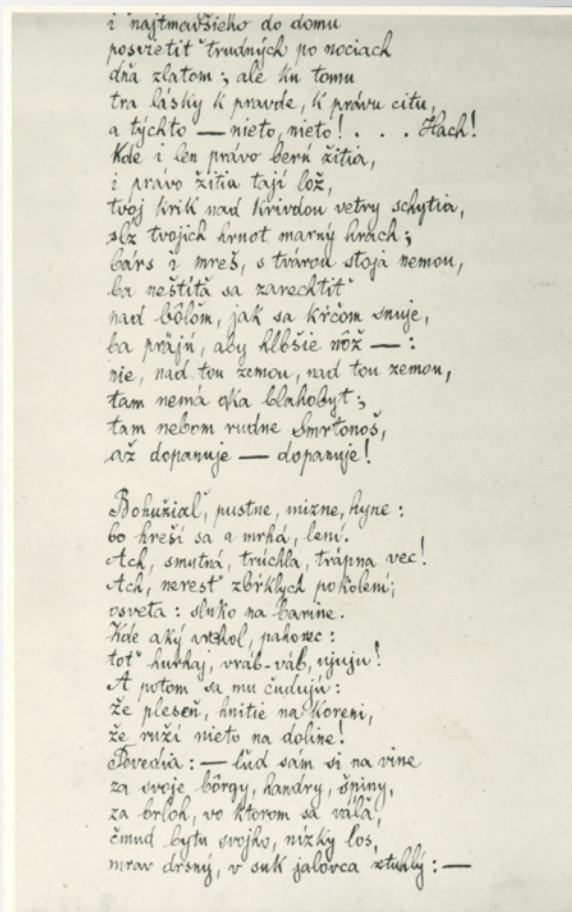 i najtmavšieho do domu
posvietiť trudných po nociach
dňa zlatom; ale ku tomu
tra lásky k pravde, k právu citu,
a týchto — nieto, nieto! . . . Hach!
Kde i len právo berú žitia,
i právo žitia tají lož,
tvoj krik nad krivdou vetry schytia,
slz tvojich hrnot marný hrach;
bárs i mreš, s tvárou stoja nemou,
ba neštítä sa zarechtiť
nad bôľom, jak sa kŕčom snuje,
ba präjú, aby hlbšie nôž — :
nie, nad tou zemou, nad tou zemou,
tam nemá oka blahobyt;
tam nebom rudne Smrtonoš,
až dopanuje — dopanuje!
Bohužiaľ, pustne, mizne, hyne:
bo hreší sa a mrhá, lení.
Ach, smutná, trúchla, trápna vec!
Ach, neresť zbŕklych pokolení;
osveta: slnko na barine.
Kde aký vrchol, pahorec:
toť hurhaj, vráb-váb, ujuju!
A potom sa mu čudujú:
že pleseň, hnitie na koreni,
že ruží nieto na doline!
Povedia: — ľud sám si na vine
za svoje bôrgy, handry, špiny,
za brloh, vo ktorom sa váľa,
čmud bytu svojho, nízky los,
mrav drsný, v suk jalovca ztuhlý: —